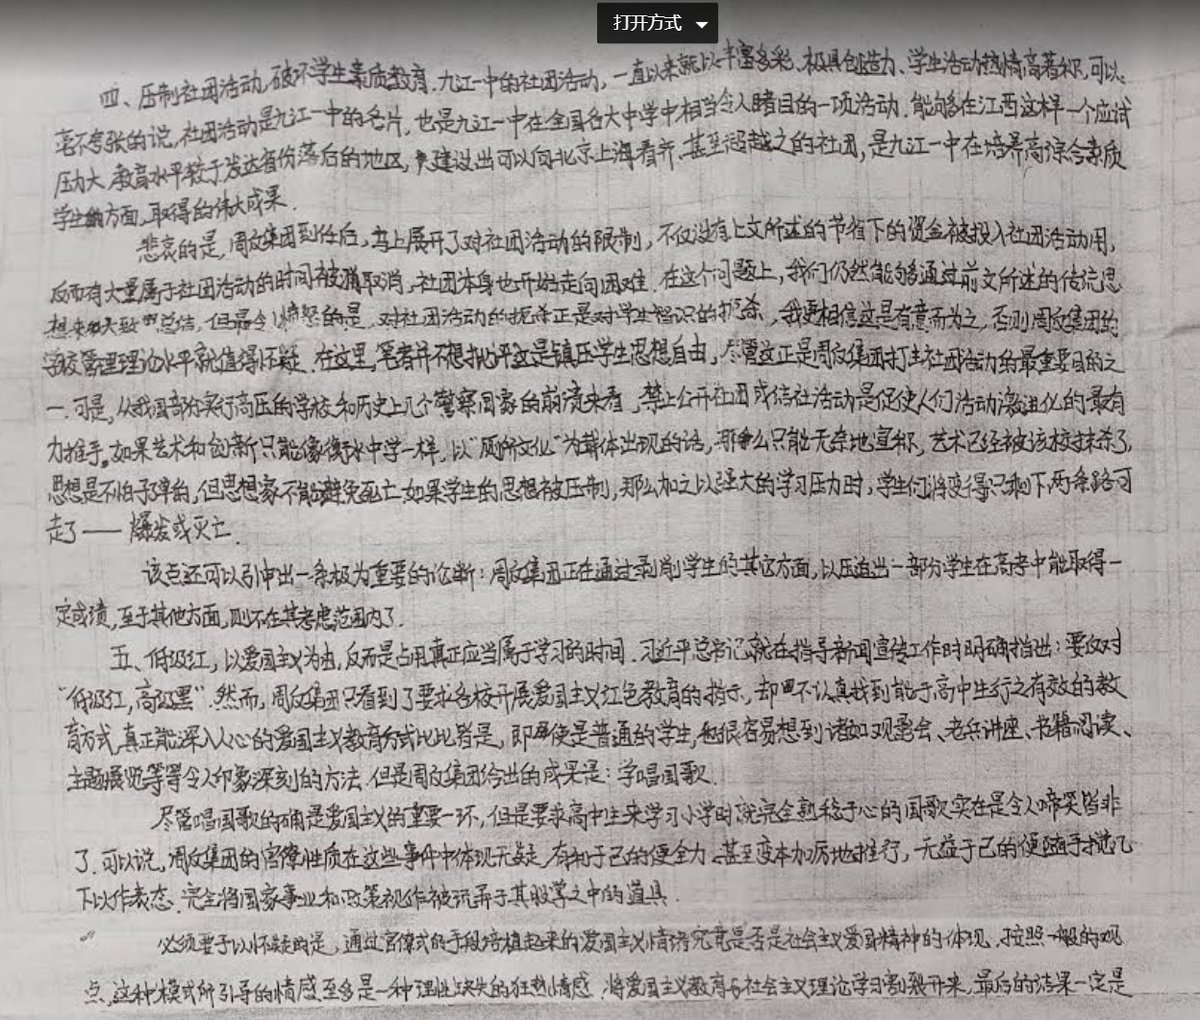 打开方式
四、压制社团活动,破坏学生素质教育.九江一中的社团活动,一直以来就以丰富多彩、极具创造力、学生活动热情高著称,可以
毫不夸张的说,社团活动是九江一中的名片,也是九江一中在全国各大中学中相当令人瞩目的一项活动.能够在江西这样一个应试
压力大、教育水平较于发达省份落后的地区,建设出可以向北京上海看齐、甚至超越之的社团,是九江一中在培养高综合素质
学生的方面,取得的伟大成果.
悲哀的是,周政集团到任后,马上展开了对社团活动的限制,不仅没有上文所述的节省下的资金被投入社团活动用,
反而有大量属于社团活动的时间被取消,社团本身也开始走向困难.在这个问题上,我们仍然能够通过前文所述的传统思
想来大致总结,但最令人愤怒的是,对社团活动的扼杀正是对学生智识的扼杀,我更相信这是有意而为之,否则周政集团的
学校管理理论水平就值得怀疑.在这里,笔者并不想批评这是镇压学生思想自由,尽管这正是周政集团打击社团活动的最重要目的之
一.可是,从我国部分实行高压的学校和历史上几个警察国家的崩溃来看,禁止公开社团或结社活动是促使人们活动激进化的最有
力推手。如果艺术和创新只能像衡水中学一样,以“厕所文化”为载体出现的话,那么只能无奈地宣称,艺术已经被该校抹杀了,
思想是不怕子弹的,但思想家不能避免死亡.如果学生的思想被压制,那么加之以强大的学习压力时,学生们将变得只剩下两条路可
走了——爆发或灭亡.
该点还可以引申出一条极为重要的论断:周政集团正在通过剥削学生的其它方面,以压迫出一部分学生在高考中能取得一
定成绩,至于其他方面,则不在其考虑范围内了.
五、低级红,以爱国主义为由,反而是占用真正应当属于学习的时间.习近平总书记就在指导新闻宣传工作时明确指出:要反对
“低级红,高级黑”.然而,周政集团只看到了要求各校开展爱国主义红色教育的指示,却不认真找到能于高中生行之有效的教
育方式,真正能深入人心的爱国主义教育方式比比皆是,即使是普通的学生,也很容易想到诸如观影会、老兵讲座、书籍阅读、
主题展览等等令人印象深刻的方法.但是周政集团给出的成果是:学唱国歌.
尽管唱国歌的确是爱国主义的重要一环,但是要求高中生来学习小学时就完全熟稔于心的国歌实在是令人啼笑皆非
了.可以说,周政集团的官僚性质在这些事件中体现无疑,有利于己的便全力、甚至变本加厉地推行,无益于己的便随手搅几
下以作表态.完全将国家事业和政策视作被玩弄于其股掌之中的道具.
必须要予以怀疑的是,通过官僚式的手段培植起来的爱国主义情绪究竟是否是社会主义爱国精神的体现,按照一般的观
点,这种模式所引导的情感至多是一种理性缺失的狂热情感.将爱国主义教育与社会主义理论学习割裂开来,最后的结果一定是